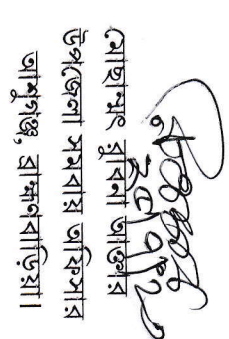 মোছাম্মৎ রুবিনা আক্তার
উপজেলা সমবায় অফিসার
আশুগঞ্জ, ব্রাহ্মণবাড়িয়া।